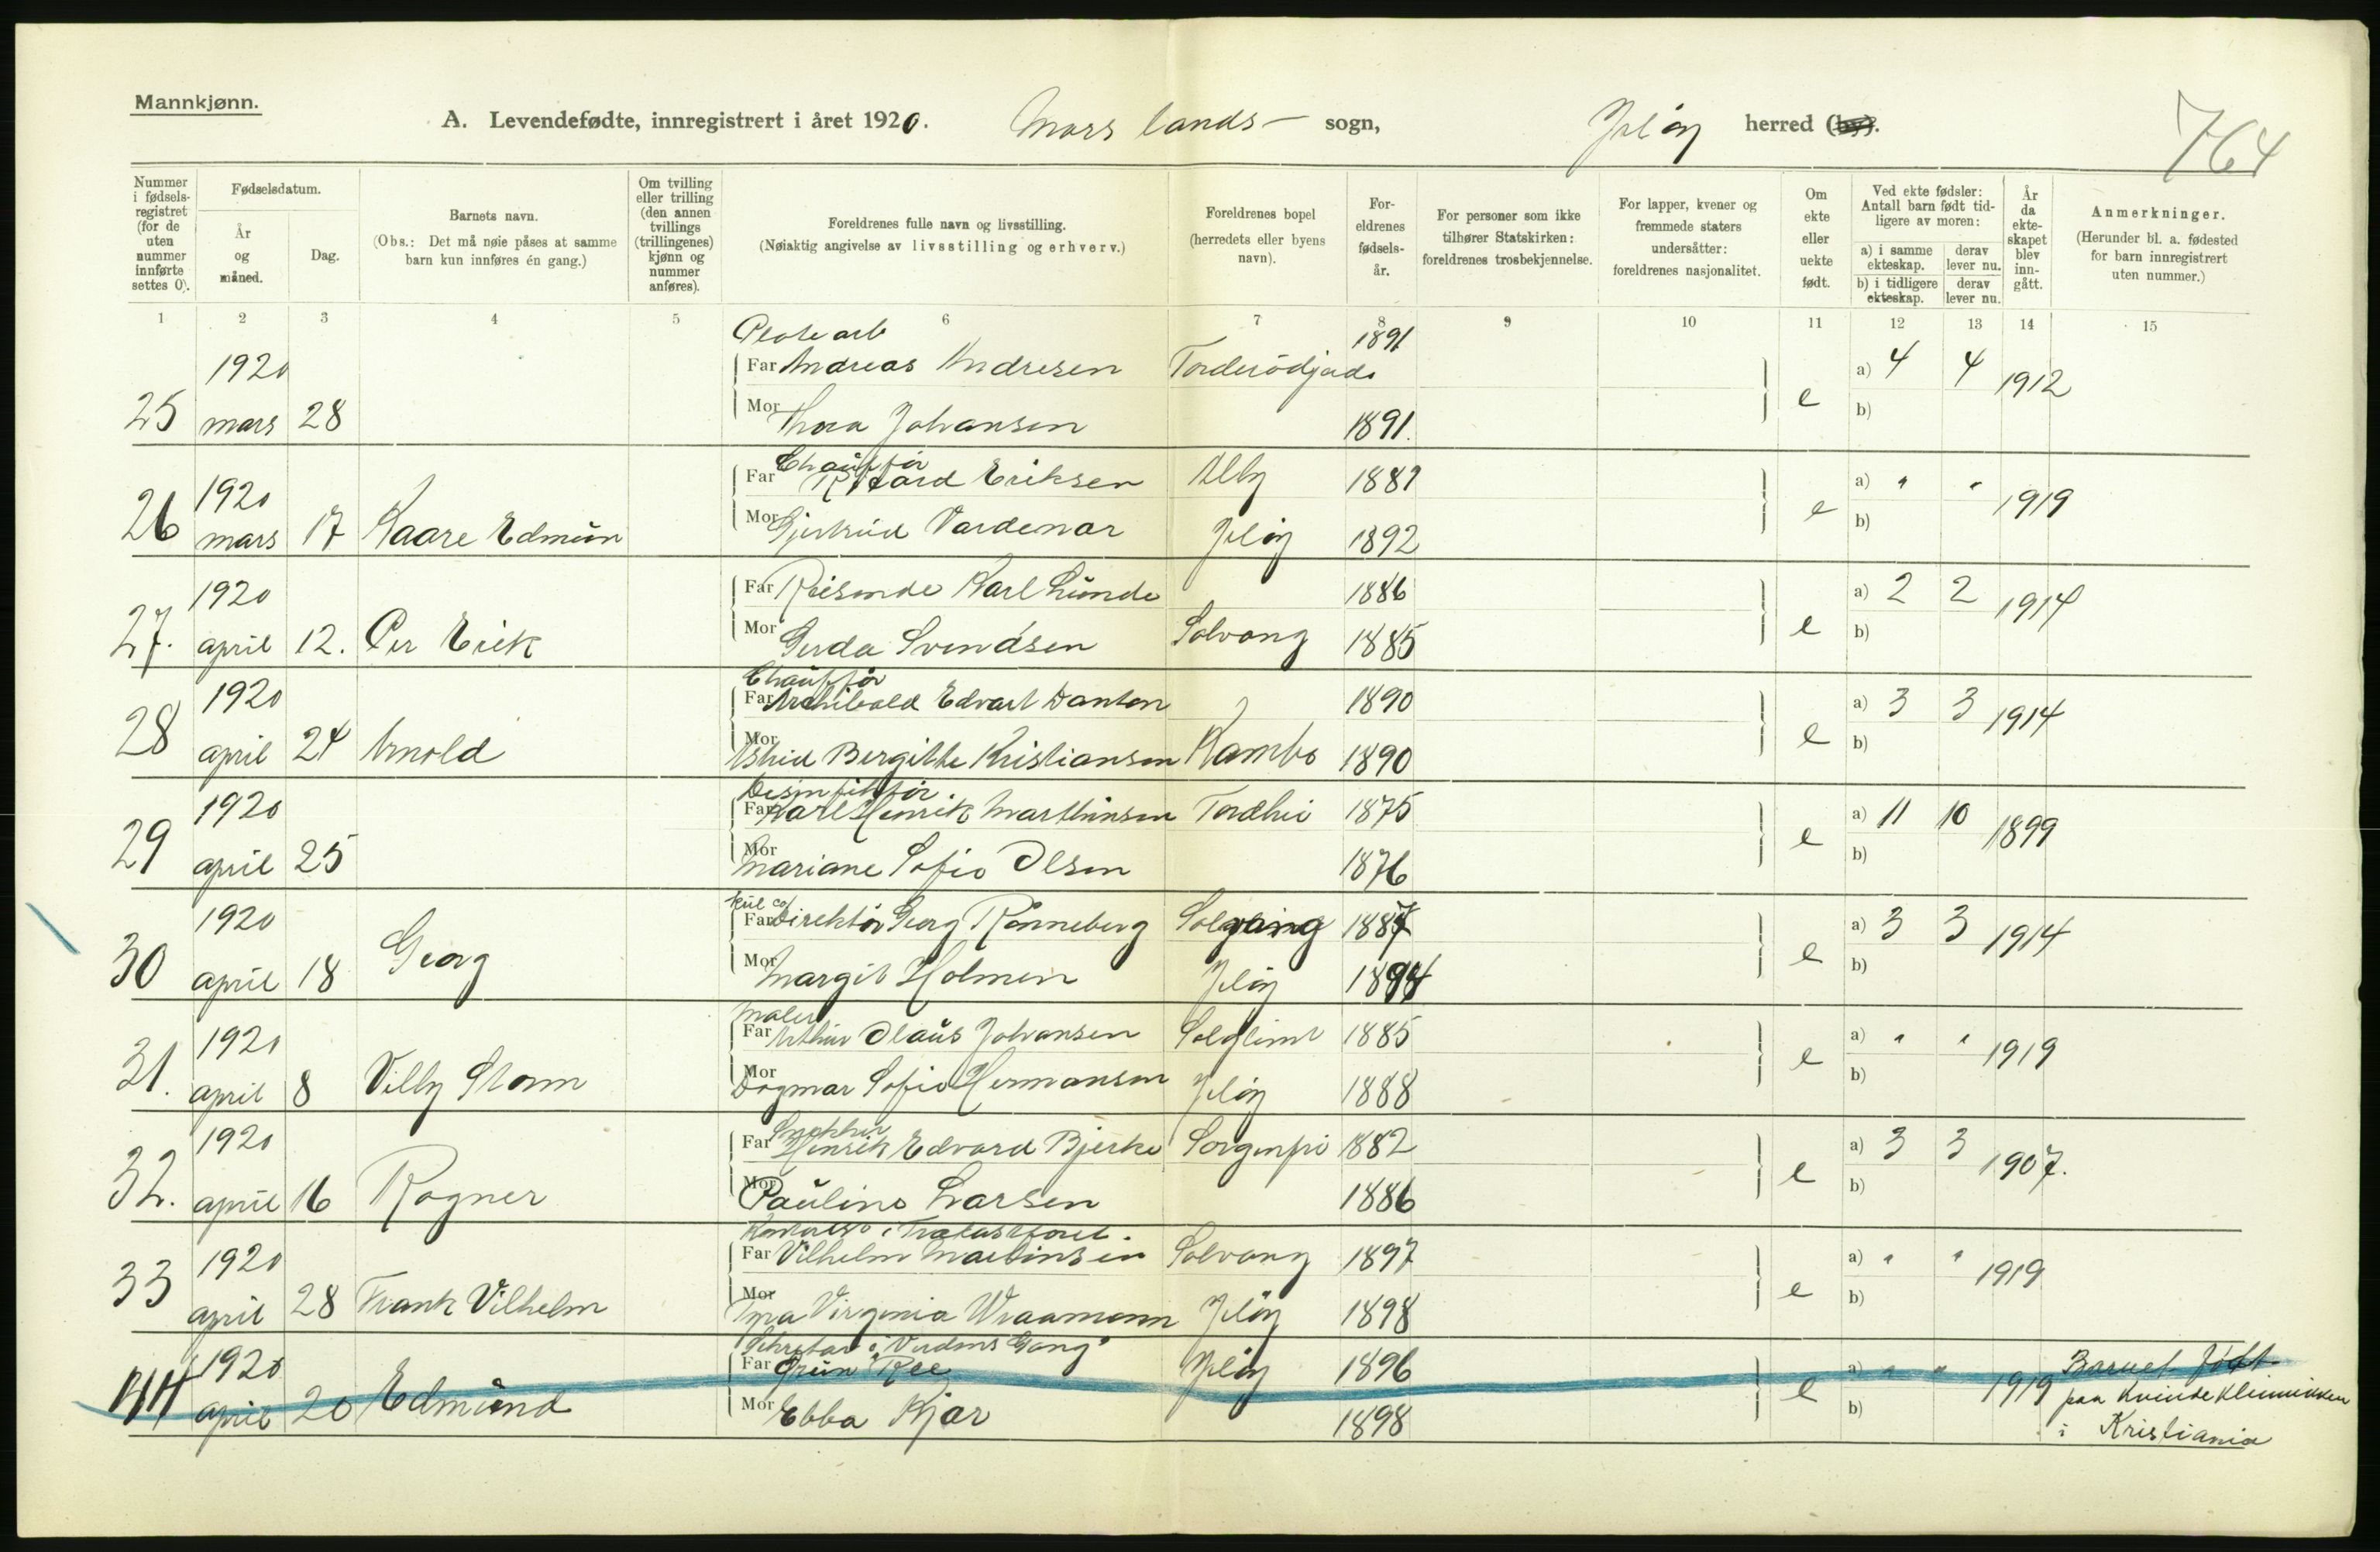 Mannkjønn.
A. Levendefødte, innregistrert i året 1920. Moss lands- sogn, Jeløy herred (by).
764
Nummer i fødsels-registret (for de uten nummer innførte settes 0).
Fødselsdatum.
År og måned.
Dag.
Barnets navn.
(Obs.: Det må nøie påses at samme barn kun innføres én gang.)
Om tvilling eller trilling (den annen tvillings (trillingenes) kjønn og nummer anføres).
Foreldrenes fulle navn og livsstilling.
(Nøiaktig angivelse av livsstilling og erhverv.)
Foreldrenes bopel (herredets eller byens navn).
For-eldrenes fødsels-år.
For personer som ikke tilhører Statskirken: foreldrenes trosbekjennelse.
For lapper, kvener og fremmede staters undersåtter: foreldrenes nasjonalitet.
Om ekte eller uekte født.
Ved ekte fødsler: Antall barn født tid-ligere av moren:
a) i samme ekteskap.
derav lever nu.
b) i tidligere ekteskap.
derav lever nu.
År da ekte-skapet blev inn-gått.
Anmerkninger.
(Herunder bl. a. fødested for barn innregistrert uten nummer.)
1 2 3 4 5 6 7 8 9 10 11 12 13 14 15
25 1920 mars 28
Far Andreas Andresen 1891
Mor Thora Johansen 1891.
e a) 4 4 1912
b)
26 1920 mars 17 Kaare Edmun
Chauffør
Far Rikard Eriksen Alby 1881
Mor Gjertrud Vardenar Jeløy 1892
e a) " " 1919
b)
27. 1920 april 12. Per Erik
Far Reisende Karl Lunde 1886
Mor Gerda Svendsen Solvang 1885
e a) 2 2 1914
b)
28 1920 april 24 Arnold
Chauffør
Far Archibald Edvart Danton 1890
Mor Astrid Bergithe Kristiansen Kambo 1890
e a) 3 3 1914
b)
29 1920 april 25
Desinfiktør.
Far Karl Henrik Marthinsen 1875
Mor Mariane Sofie Olsen 1876
e a) 11 10 1899
b)
30 1920 april 18 Georg
Far Direktør Georg Rønneberg Solvang 1887
Mor Margit Holmen Jeløy 1894
e a) 3 3 1914
b)
31. 1920 april 8 Villy Storm
Maler
Far Arthur Olaus Johansen Solglimt 1885
Mor Dagmar Sofie Hermansen Jeløy 1888
e a) " " 1919
b)
32. 1920 april 16 Ragner
Snekker
Far Henrik Edvard Bjerke Sorgenfri 1882
Mor Pauline Larsen 1886
e a) 3 3 1907.
b)
33 1920 april 28 Frank Vilhelm
Far Vilhelm Martinsen Solvang 1897
Mor Virginia Wraamann Jeløy 1898
e a) " " 1919
b)
1920 april 20 Edmund
Sekretær i "Verdens Gang"
Far Grün Ree Jeløy 1896
Mor Ebba Kjær 1898
e a) " " 1919
b)
Barnet født
paa kvindeklinnikken
i Kristiania